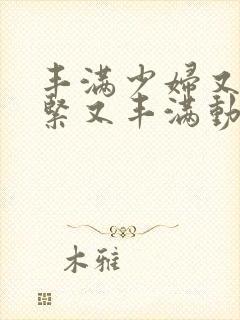 丰满少婦又
緊又丰满動
木雅